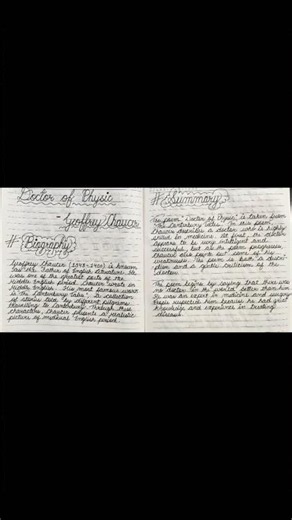 Doctor of Physic
- Geoffrey Chaucer
# Biography
Geoffrey Chaucer (1343-1400) is known
as the Father of English literature. He
was one of the greatest poets of the
Middle English period. Chaucer wrote in
Middle English. His most famous work
is "The Canterbury Tales", a collection
of stories told by different pilgrims
travelling to Canterbury. Through these
characters, Chaucer presents a realistic
picture of medieval English period.
# Summary
The poem "Doctor of Physic" is taken from
The Canterbury Tales. In this poem
Chaucer describes a doctor who is highly
skilled in medicine. At first, the doctor
appears to be very intelligent and
successful, but as the poem progresses
Chaucer also points out some of his
weaknesses. The poem is both a descri-
ption and a gentle criticism of the
doctor.
The poem begins by saying that there was
no doctor in the world better than him.
He was an expert in medicine and surgery.
People respected him because he had great
knowledge and experience in treating
diseases.